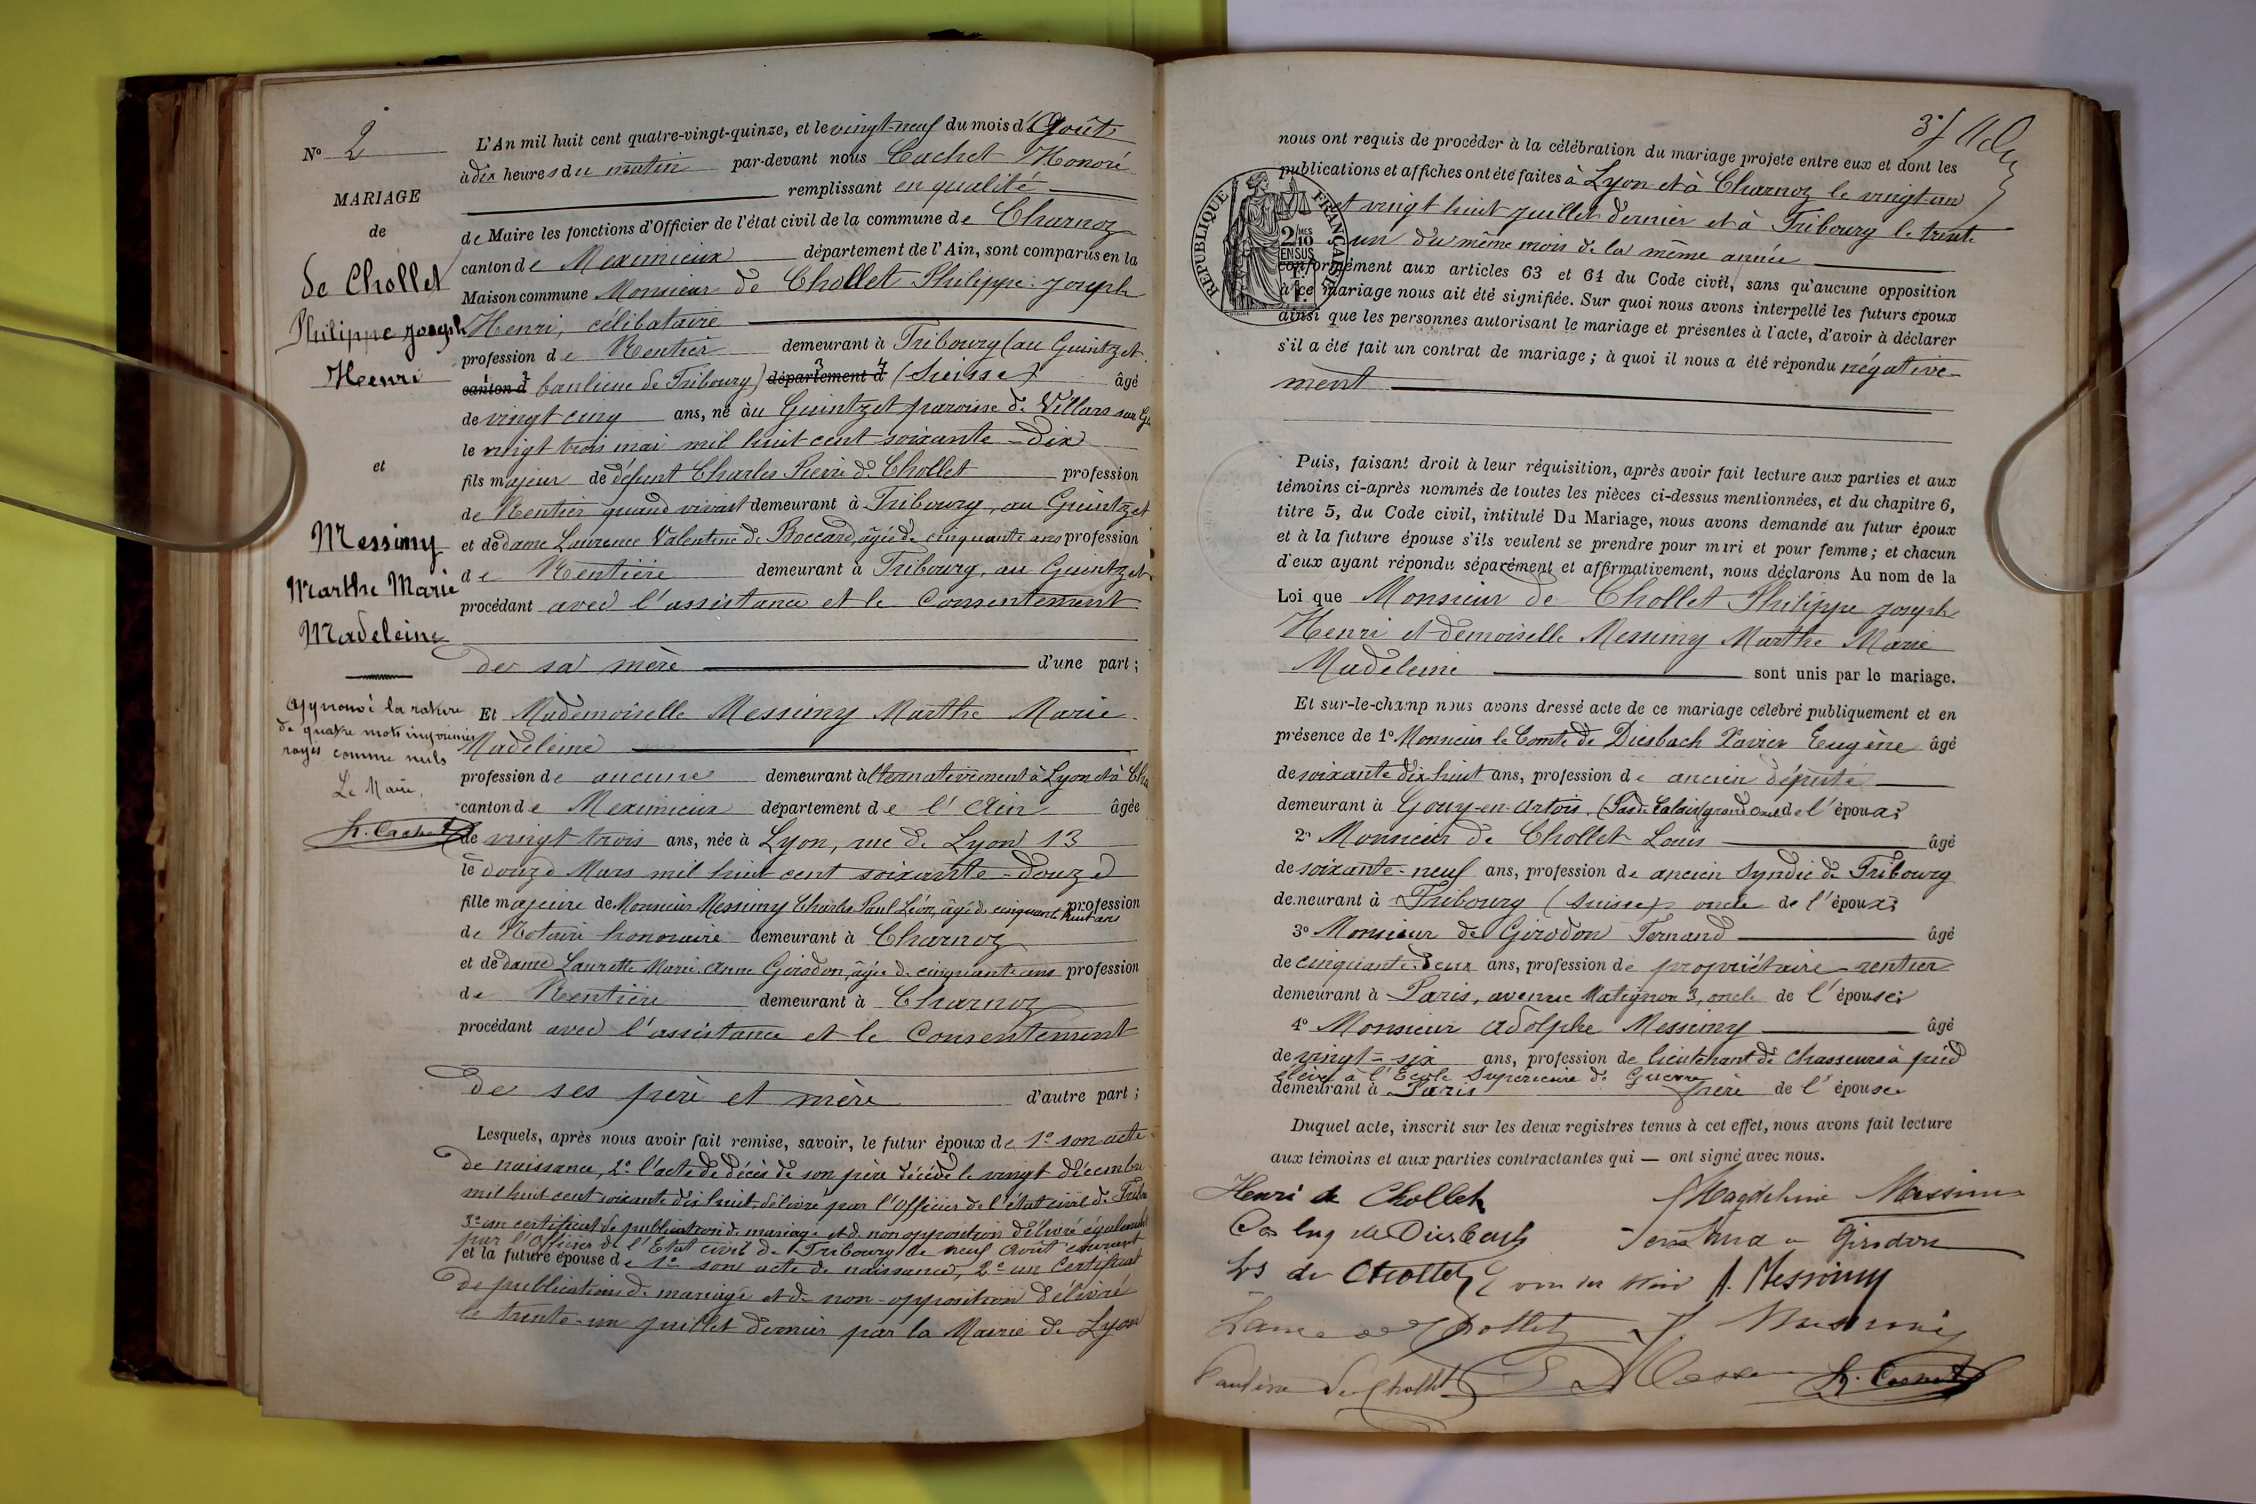 N° 2
MARIAGE
de
de Chollet
Philippe Joseph
Henri
et
Messimy
Marthe Marie
Madeleine
Approuvé la rature
de quatre mots imprimés
rayés comme nuls
Le Maire,
h. Cachet
L'An mil huit cent quatre-vingt-quinze, et le vingt-neuf du mois d'Août
à dix heures du matin par-devant nous Cachet Honoré
remplissant en qualité
de Maire les fonctions d'Officier de l'état civil de la commune de Charnoz
canton de Meximieux département de l'Ain, sont comparus en la
Maison commune Monsieur de Chollet Philippe Joseph
Henri, célibataire
profession de Rentier demeurant à Fribourg (au Guintzet
canton d banlieue de Fribourg) département d (Suisse) âgé
de vingt cinq ans, né au Guintzet paroisse de Villars sur Gl
le vingt trois mai mil huit cent soixante-dix
fils majeur de défunt Charles Pierre de Chollet profession
de Rentier quand vivait demeurant à Fribourg, au Guintzet
et de dame Laurence Valentine de Boccard, âgée de cinquante ans profession
de Rentière demeurant à Fribourg, au Guintzet
procédant avec l'assistance et le consentement
de sa mère d'une part;
Et Mademoiselle Messimy Marthe Marie
Madeleine
profession de aucune demeurant alternativement à Lyon et à Cha
canton de Meximieux département de l'Ain âgée
de vingt trois ans, née à Lyon, rue de Lyon 13
le douze Mars mil huit cent soixante-douze
fille majeure de Monsieur Messimy Charles Paul Léon, âgé de cinquante huit ans profession
de Notaire honoraire demeurant à Charnoz
et de dame Laurette Marie Anne Girodon, âgée de cinquante ans profession
de Rentière demeurant à Charnoz
procédant avec l'assistance et le consentement
de ses père et mère d'autre part;
Lesquels, après nous avoir fait remise, savoir, le futur époux de 1° son acte
de naissance, 2° l'acte de décès de son père décédé le vingt décembre
mil huit cent soixante dix huit, délivré par l'Officier de l'état civil de Fribo
3° un certificat de publication de mariage et de non opposition délivré également
par l'Officier de l'Etat civil de Fribourg le neuf Août courant
et la future épouse de 1° son acte de naissance, 2° un certificat
de publication de mariage et de non-opposition délivré
le trente-un juillet dernier par la Mairie de Lyon
3
nous ont requis de procéder à la célébration du mariage projeté entre eux et dont les
publications et affiches ont été faites à Lyon et à Charnoz le vingt un
et vingt huit juillet dernier et à Fribourg le trente
un du même mois de la même année
RÉPUBLIQUE FRANÇAISE
2/10 MES
EN SUS
conformément aux articles 63 et 64 du Code civil, sans qu'aucune opposition
à ce mariage nous ait été signifiée. Sur quoi nous avons interpellé les futurs époux
ainsi que les personnes autorisant le mariage et présentes à l'acte, d'avoir à déclarer
s'il a été fait un contrat de mariage; à quoi il nous a été répondu négative-
ment
Puis, faisant droit à leur réquisition, après avoir fait lecture aux parties et aux
témoins ci-après nommés de toutes les pièces ci-dessus mentionnées, et du chapitre 6,
titre 5, du Code civil, intitulé Du Mariage, nous avons demandé au futur époux
et à la future épouse s'ils veulent se prendre pour mari et pour femme; et chacun
d'eux ayant répondu séparément et affirmativement, nous déclarons Au nom de la
Loi que Monsieur de Chollet Philippe Joseph
Henri et demoiselle Messimy Marthe Marie
Madeleine sont unis par le mariage.
Et sur-le-champ nous avons dressé acte de ce mariage célébré publiquement et en
présence de 1° Monsieur le Comte de Diesbach Xavier Eugène âgé
de soixante dix huit ans, profession de ancien député
demeurant à Gouy-en-Artois. (Pas de Calais) grand oncle de l'époux;
2° Monsieur de Chollet Louis âgé
de soixante-neuf ans, profession de ancien Syndic de Fribourg
demeurant à Fribourg (Suisse) oncle de l'époux;
3° Monsieur de Girodon Fernand âgé
de cinquante-deux ans, profession de propriétaire rentier
demeurant à Paris, avenue Matignon 3, oncle de l'épouse;
4° Monsieur Adolphe Messimy âgé
de vingt-six ans, profession de lieutenant de chasseurs à pied
élève à l'Ecole Supérieure de Guerre
demeurant à Paris frère de l'épouse
Duquel acte, inscrit sur les deux registres tenus à cet effet, nous avons fait lecture
aux témoins et aux parties contractantes qui — ont signé avec nous.
Henri de Chollet Magdeleine Messimy
de Diesbach Girodon
Ls de Chollet A. Messimy
de Chollet Messimy
Pauline de Chollet h. Cachet